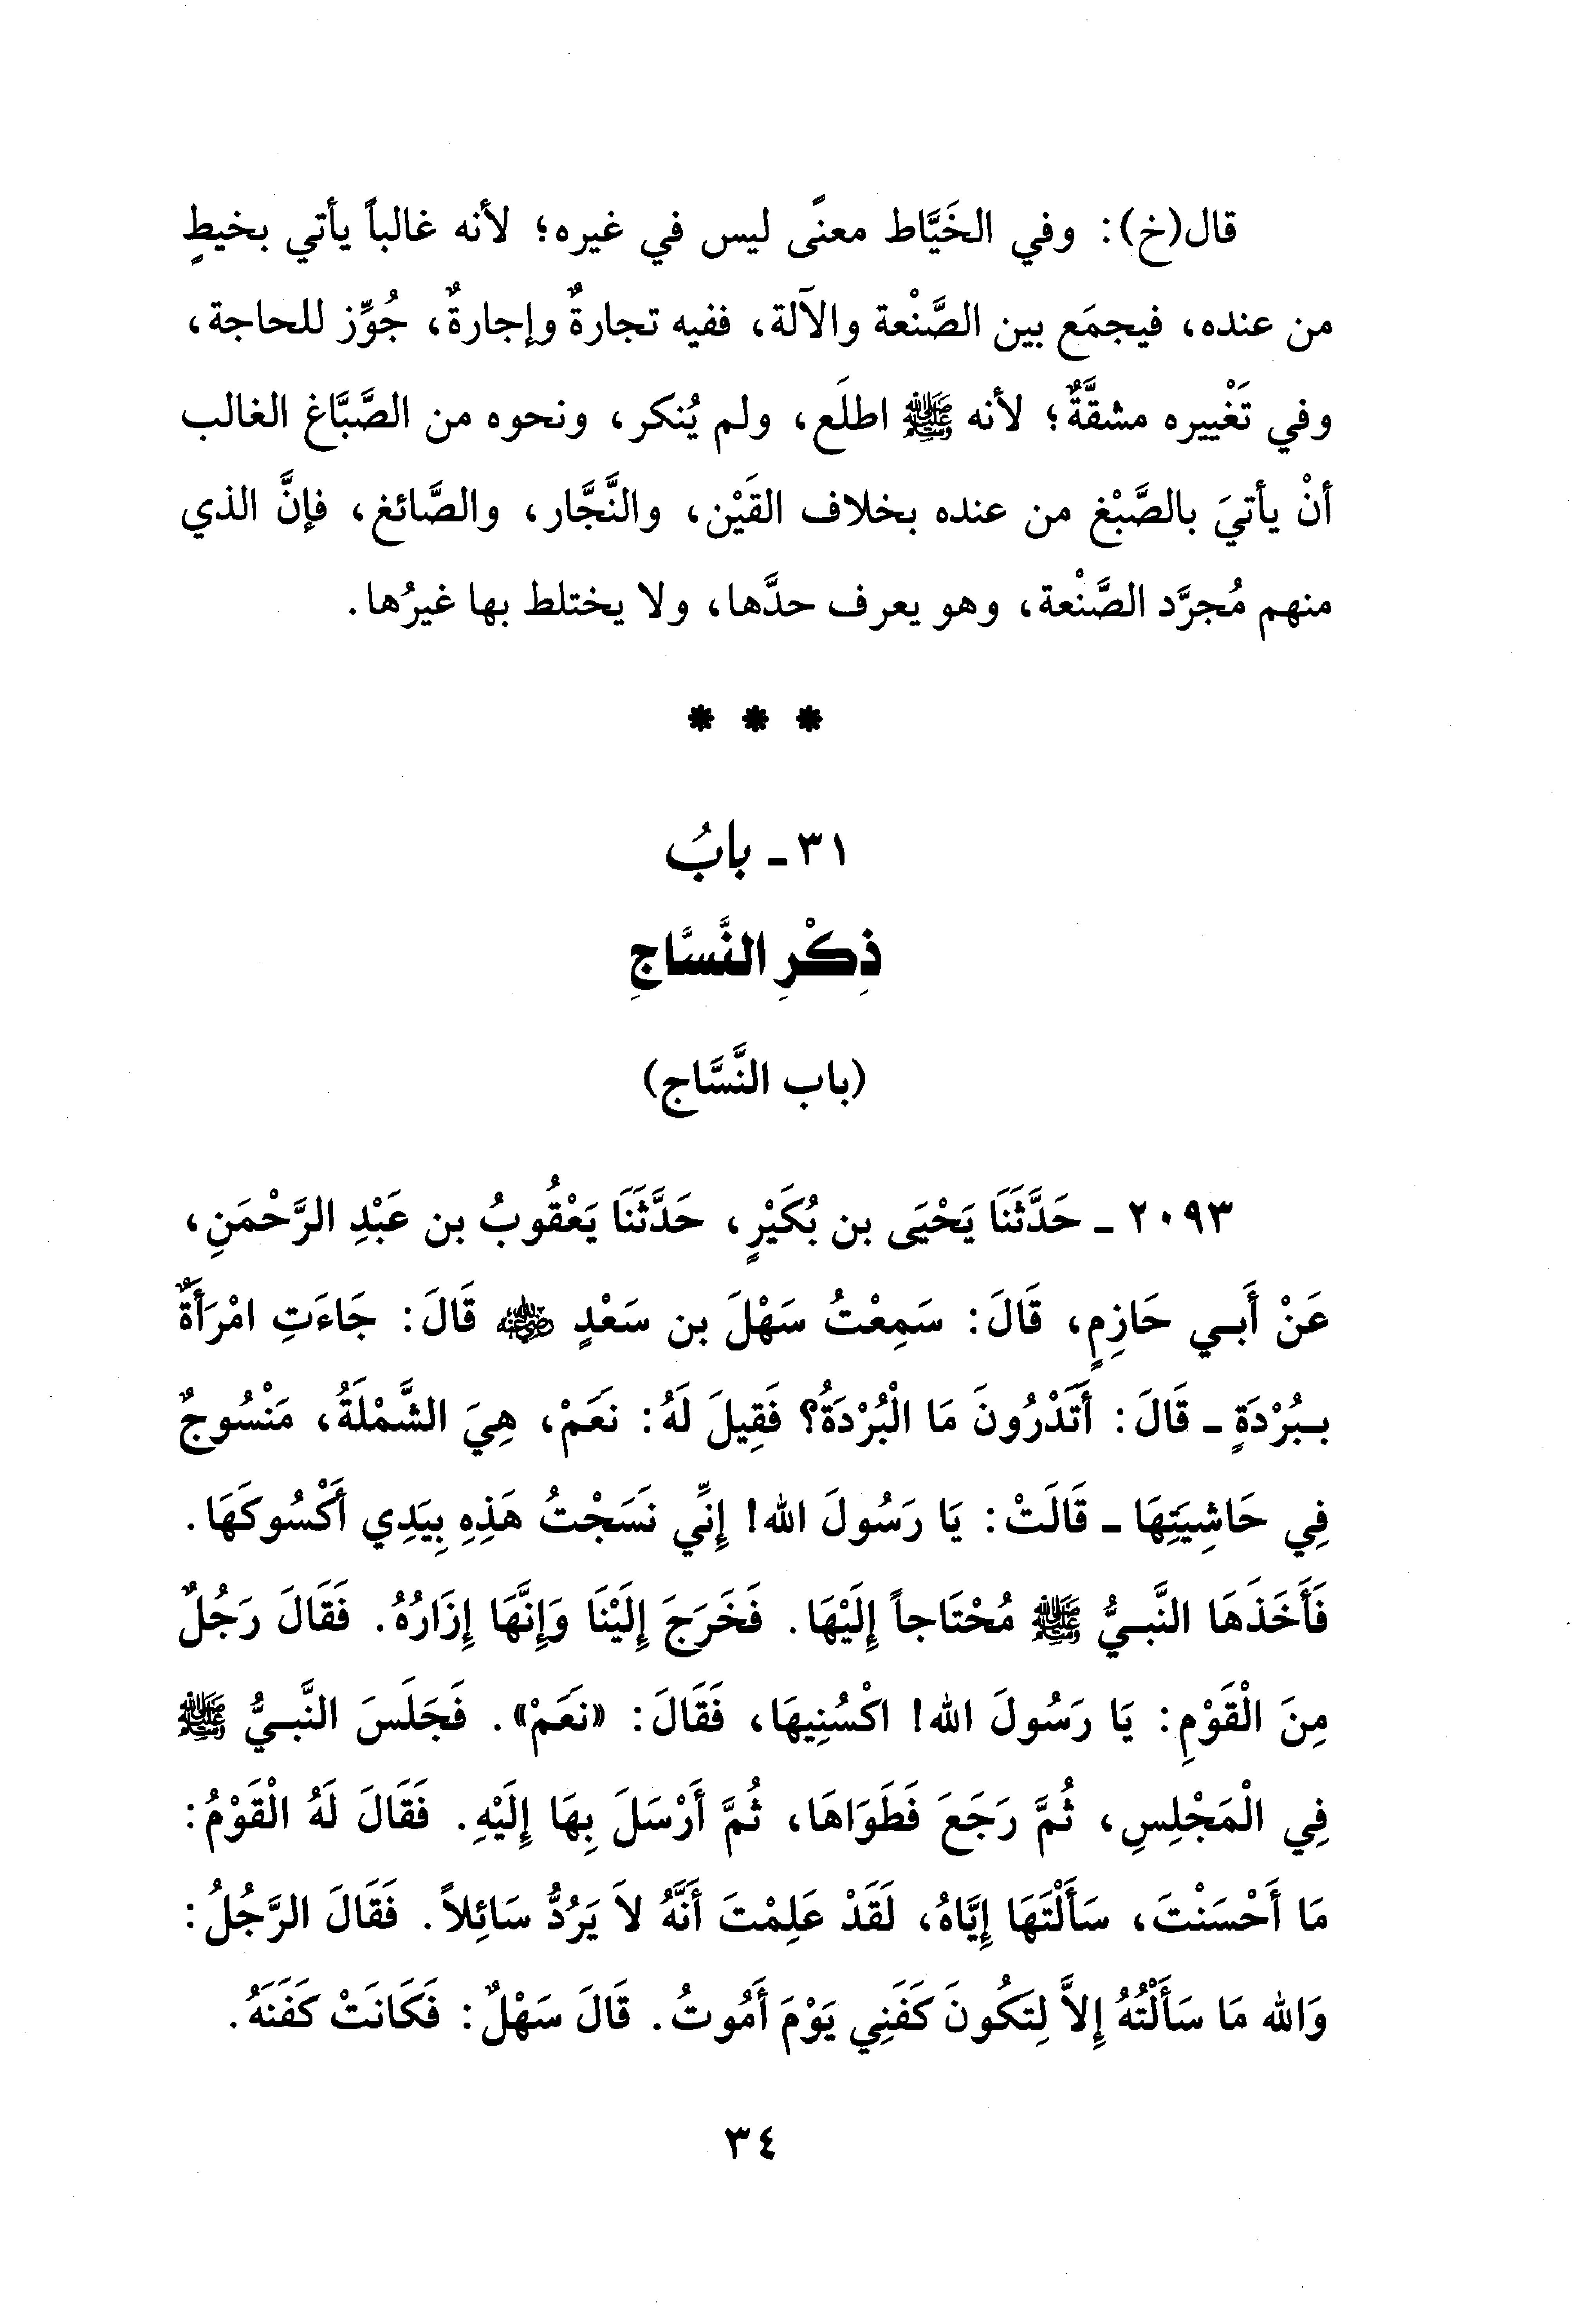 قال(خ): وفي الخَيَّاط معنًى ليس في غيره؛ لأنه غالباً يأتي بخيطٍ
من عنده، فيجمَع بين الصَّنْعة والآلة، ففيه تجارةٌ وإجارةٌ، جُوِّز للحاجة،
وفي تَغْييره مشقَّةٌ؛ لأنه ﷺ اطلَع، ولم يُنكر، ونحوه من الصَّبَّاغ الغالب
أنْ يأتيَ بالصَّبْغ من عنده بخلاف القَيْن، والنَّجَّار، والصَّائغ، فإنَّ الذي
منهم مُجرَّد الصَّنْعة، وهو يعرف حدَّها، ولا يختلط بها غيرُها.
* * *
٣١ ـ بابُ
ذِكْرِ النَّسَّاجِ
(باب النَّسَّاج)
٢٠٩٣ ـ حَدَّثَنَا يَحْيَى بن بُكَيْرٍ، حَدَّثَنَا يَعْقُوبُ بن عَبْدِ الرَّحْمَنِ،
عَنْ أَبِي حَازِمٍ، قَالَ: سَمِعْتُ سَهْلَ بن سَعْدٍ ﵁ قَالَ: جَاءَتِ امْرَأَةٌ
بِبُرْدَةٍ ـ قَالَ: أَتَدْرُونَ مَا الْبُرْدَةُ؟ فَقِيلَ لَهُ: نَعَمْ، هِيَ الشَّمْلَةُ، مَنْسُوجٌ
فِي حَاشِيَتِهَا ـ قَالَتْ: يَا رَسُولَ الله! إِنِّي نَسَجْتُ هَذِهِ بِيَدِي أَكْسُوكَهَا.
فَأَخَذَهَا النَّبِيُّ ﷺ مُحْتَاجاً إِلَيْهَا. فَخَرَجَ إِلَيْنَا وَإِنَّهَا إِزَارُهُ. فَقَالَ رَجُلٌ
مِنَ الْقَوْمِ: يَا رَسُولَ الله! اكْسُنِيهَا، فَقَالَ: «نَعَمْ». فَجَلَسَ النَّبِيُّ ﷺ
فِي الْمَجْلِسِ، ثُمَّ رَجَعَ فَطَوَاهَا، ثُمَّ أَرْسَلَ بِهَا إِلَيْهِ. فَقَالَ لَهُ الْقَوْمُ:
مَا أَحْسَنْتَ، سَأَلْتَهَا إِيَّاهُ، لَقَدْ عَلِمْتَ أَنَّهُ لاَ يَرُدُّ سَائِلاً. فَقَالَ الرَّجُلُ:
وَالله مَا سَأَلْتُهُ إِلاَّ لِتَكُونَ كَفَنِي يَوْمَ أَمُوتُ. قَالَ سَهْلٌ: فَكَانَتْ كَفَنَهُ.
٣٤